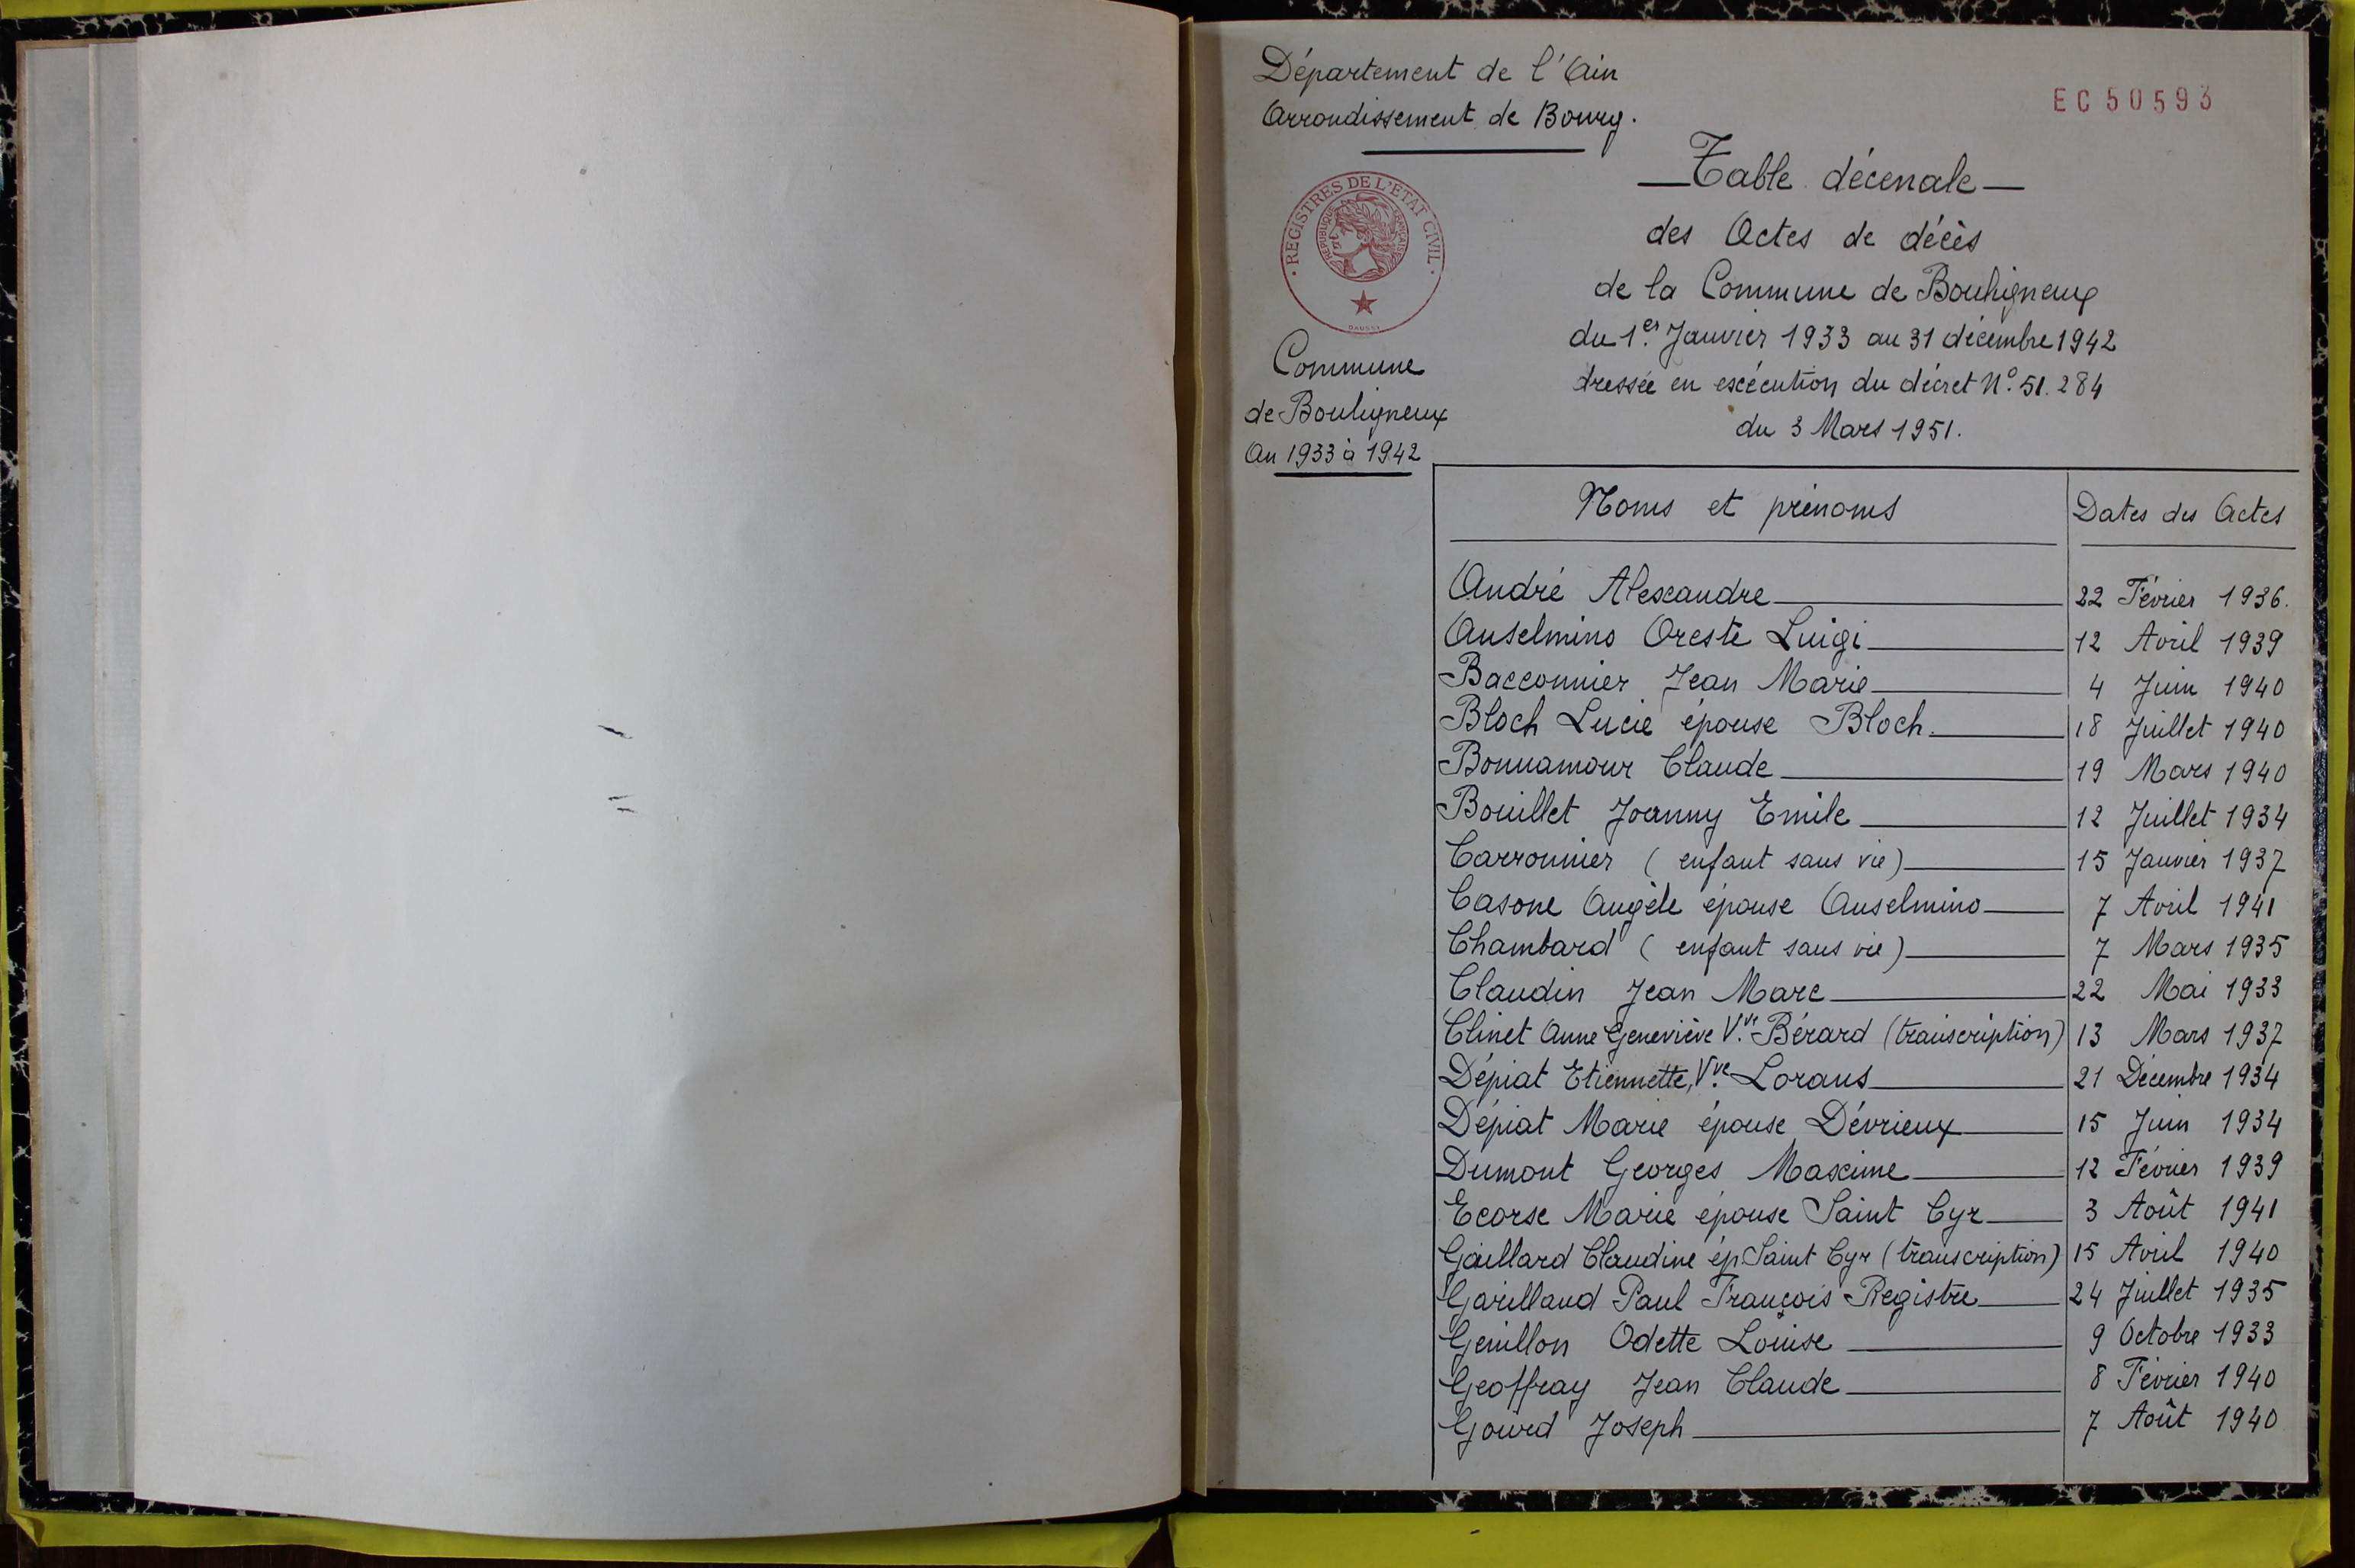 Département de l'Ain
Arrondissement de Bourg.
EC50593
Table décenale
des Actes de décès
de la Commune de Bouligneux
du 1er Janvier 1933 au 31 décembre 1942
dressée en exécution du décret N° 51.284
du 3 Mars 1951.
· REGISTRES DE L'ETAT CIVIL ·
REPUBLIQUE FRANÇAISE
Commune
de Bouligneux
An 1933 à 1942
Noms et prénoms Dates des Actes
André Alexandre 22 Février 1936.
Anselmino Oreste Luigi 12 Avril 1939
Bacconnier Jean Marie 4 Juin 1940
Bloch Lucie épouse Bloch. 18 Juillet 1940
Bonnamour Claude 19 Mars 1940
Bouillet Joanny Emile 12 Juillet 1934
Carronnier (enfant sans vie) 15 Janvier 1937
Casone Angèle épouse Anselmino 7 Avril 1941
Chambard (enfant sans vie) 7 Mars 1935
Claudin Jean Marc 22 Mai 1933
Clinet Anne Geneviève Vve Bérard (transcription) 13 Mars 1937
Dépiat Etiennette, Vve Lorans 21 Décembre 1934
Dépiat Marie épouse Dévrieux 15 Juin 1934
Dumont Georges Maxime 12 Février 1939
Ecorse Marie épouse Saint Cyr 3 Août 1941
Gaillard Claudine ép. Saint Cyr (transcription) 15 Avril 1940
Garilland Paul François Régistre 24 Juillet 1935
Genillon Odette Louise 9 Octobre 1933
Geoffray Jean Claude 8 Février 1940
Gourd Joseph 7 Août 1940